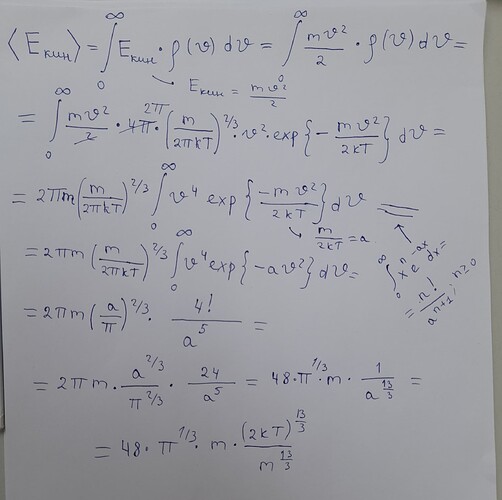 ⟨E кин⟩ = ∫₀^∞ E кин · ρ(v) dv = ∫₀^∞ mv²/2 · ρ(v) dv =
E кин = mv²/2
= ∫₀^∞ mv²/2 · 4π 2π · (m/2πkT)^2/3 · v² · exp{-mv²/2kT} dv =
= 2πm (m/2πkT)^2/3 ∫₀^∞ v⁴ exp{-mv²/2kT} dv =
m/2kT = a
= 2πm (m/2πkT)^2/3 ∫₀^∞ v⁴ exp{-av²} dv =
∫₀^∞ xⁿ e^-ax dx =
= n!/a^n+1; n≥0
= 2πm (a/π)^2/3 · 4!/a⁵ =
= 2πm · a^2/3/π^2/3 · 24/a⁵ = 48 · π^1/3 · m · 1/a^13/3 =
= 48 · π^1/3 · m · (2kT)^13/3/m^13/3